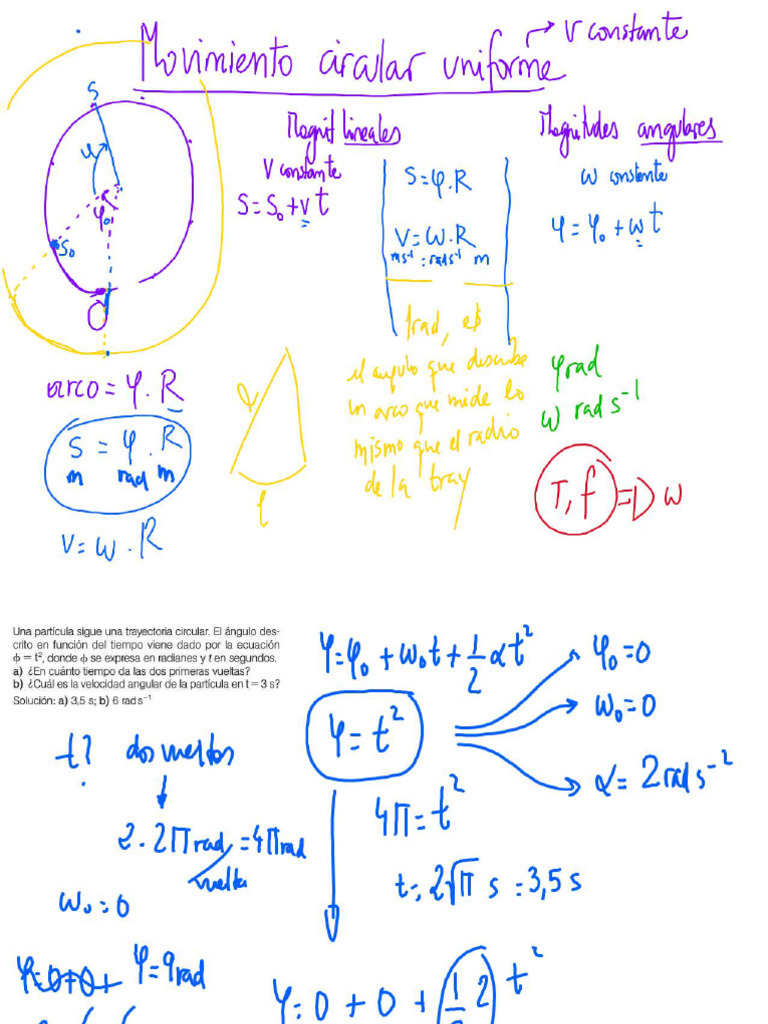 Movimiento circular uniforme → v constante
Magnit lineales
v constante
S = S₀ + v t
S = φ . R
v = ω . R
m s⁻¹ = rad s⁻¹ m
Magnitudes angulares
ω constante
φ = φ₀ + ω t
S
φ
φ₀
S₀
O
arco = φ . R
S = φ . R
m rad m
v = ω . R
R
l
1 rad, es
el angulo que describe
un arco que mide lo
mismo que el radio
de la tray
φ rad
ω rad s⁻¹
T, f ⇒ ω
Una partícula sigue una trayectoria circular. El ángulo des-
crito en función del tiempo viene dado por la ecuación
ϕ = t², donde ϕ se expresa en radianes y t en segundos.
a) ¿En cuánto tiempo da las dos primeras vueltas?
b) ¿Cuál es la velocidad angular de la partícula en t = 3 s?
Solución: a) 3,5 s; b) 6 rad s⁻¹
φ = φ₀ + ω₀ t + 1/2 α t²
φ = t²
φ₀ = 0
ω₀ = 0
α = 2 rad s⁻²
t? dos vueltas
2 . 2π rad/vuelta = 4π rad
4π = t²
t = 2√π s = 3,5 s
ω₀ = 0
φ = 0 + 0 +
φ = 9 rad
φ = 0 + 0 + (1/2 2) t²